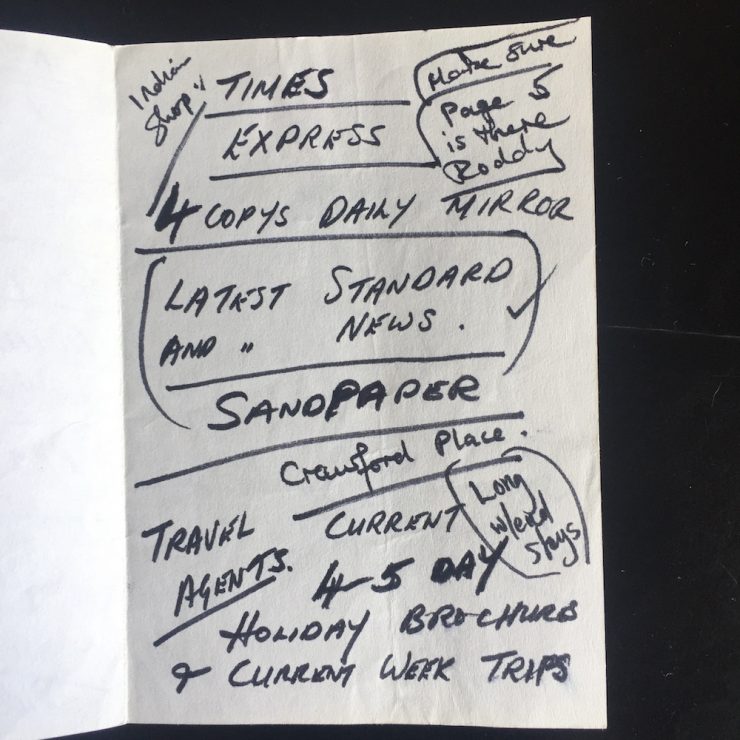 Indian
Shop
TIMES
Make Sure
Page 5
is there
Roddy
EXPRESS
4 COPYS DAILY MIRROR
LATEST STANDARD
AND " NEWS.
SANDPAPER
Crawford Place.
TRAVEL
AGENTS.
CURRENT
Long
w/end
Stays
4-5 DAY
HOLIDAY BROCHURS
& CURRENT WEEK TRIPS